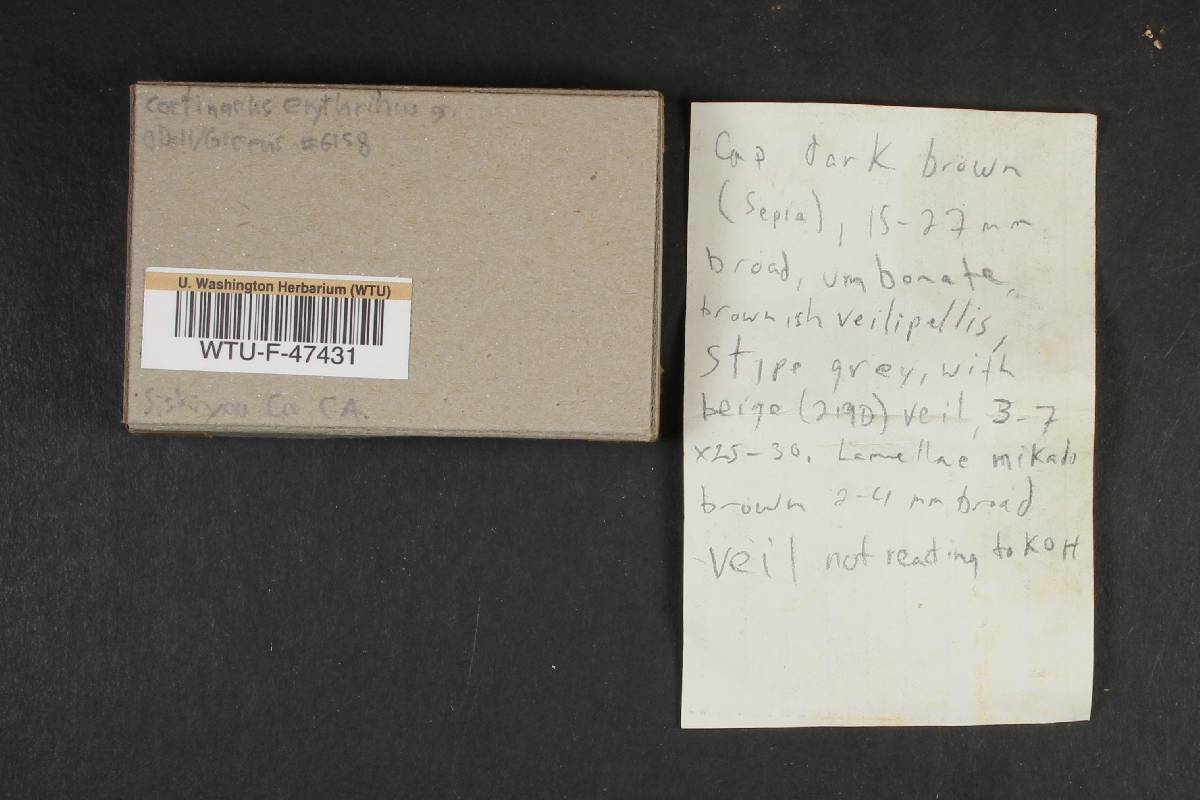 Cortinarius erythrinus gr.
Odell/Greens #6158
U. Washington Herbarium (WTU)
WTU-F-47431
Siskiyou Co CA.
Cap dark brown
(sepia), 15-27 mm
broad, umbonate,
brownish veilipellis,
Stipe grey, with
beige (219D) veil, 3-7
x25-30. Lamellae mikado
brown 2-4 mm broad
veil not reacting to KOH